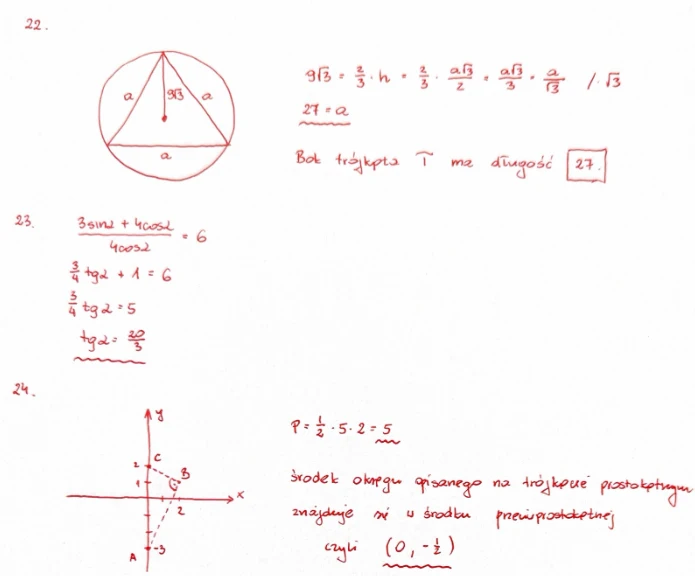 22.
a 9√3 a
a
9√3 = 2/3 · h = 2/3 · a√3/2 = a√3/3 = a/√3 / · √3
27 = a
Bok trójkąta T ma długość 27.
23.
3sinα + 4cosα / 4cosα = 6
3/4 tgα + 1 = 6
3/4 tgα = 5
tgα = 20/3
24.
y
C
2
B
1
x
2
A -3
P = 1/2 · 5 · 2 = 5
środek okręgu opisanego na trójkącie prostokątnym
znajduje się w środku przeciwprostokątnej
czyli (0, -1/2)